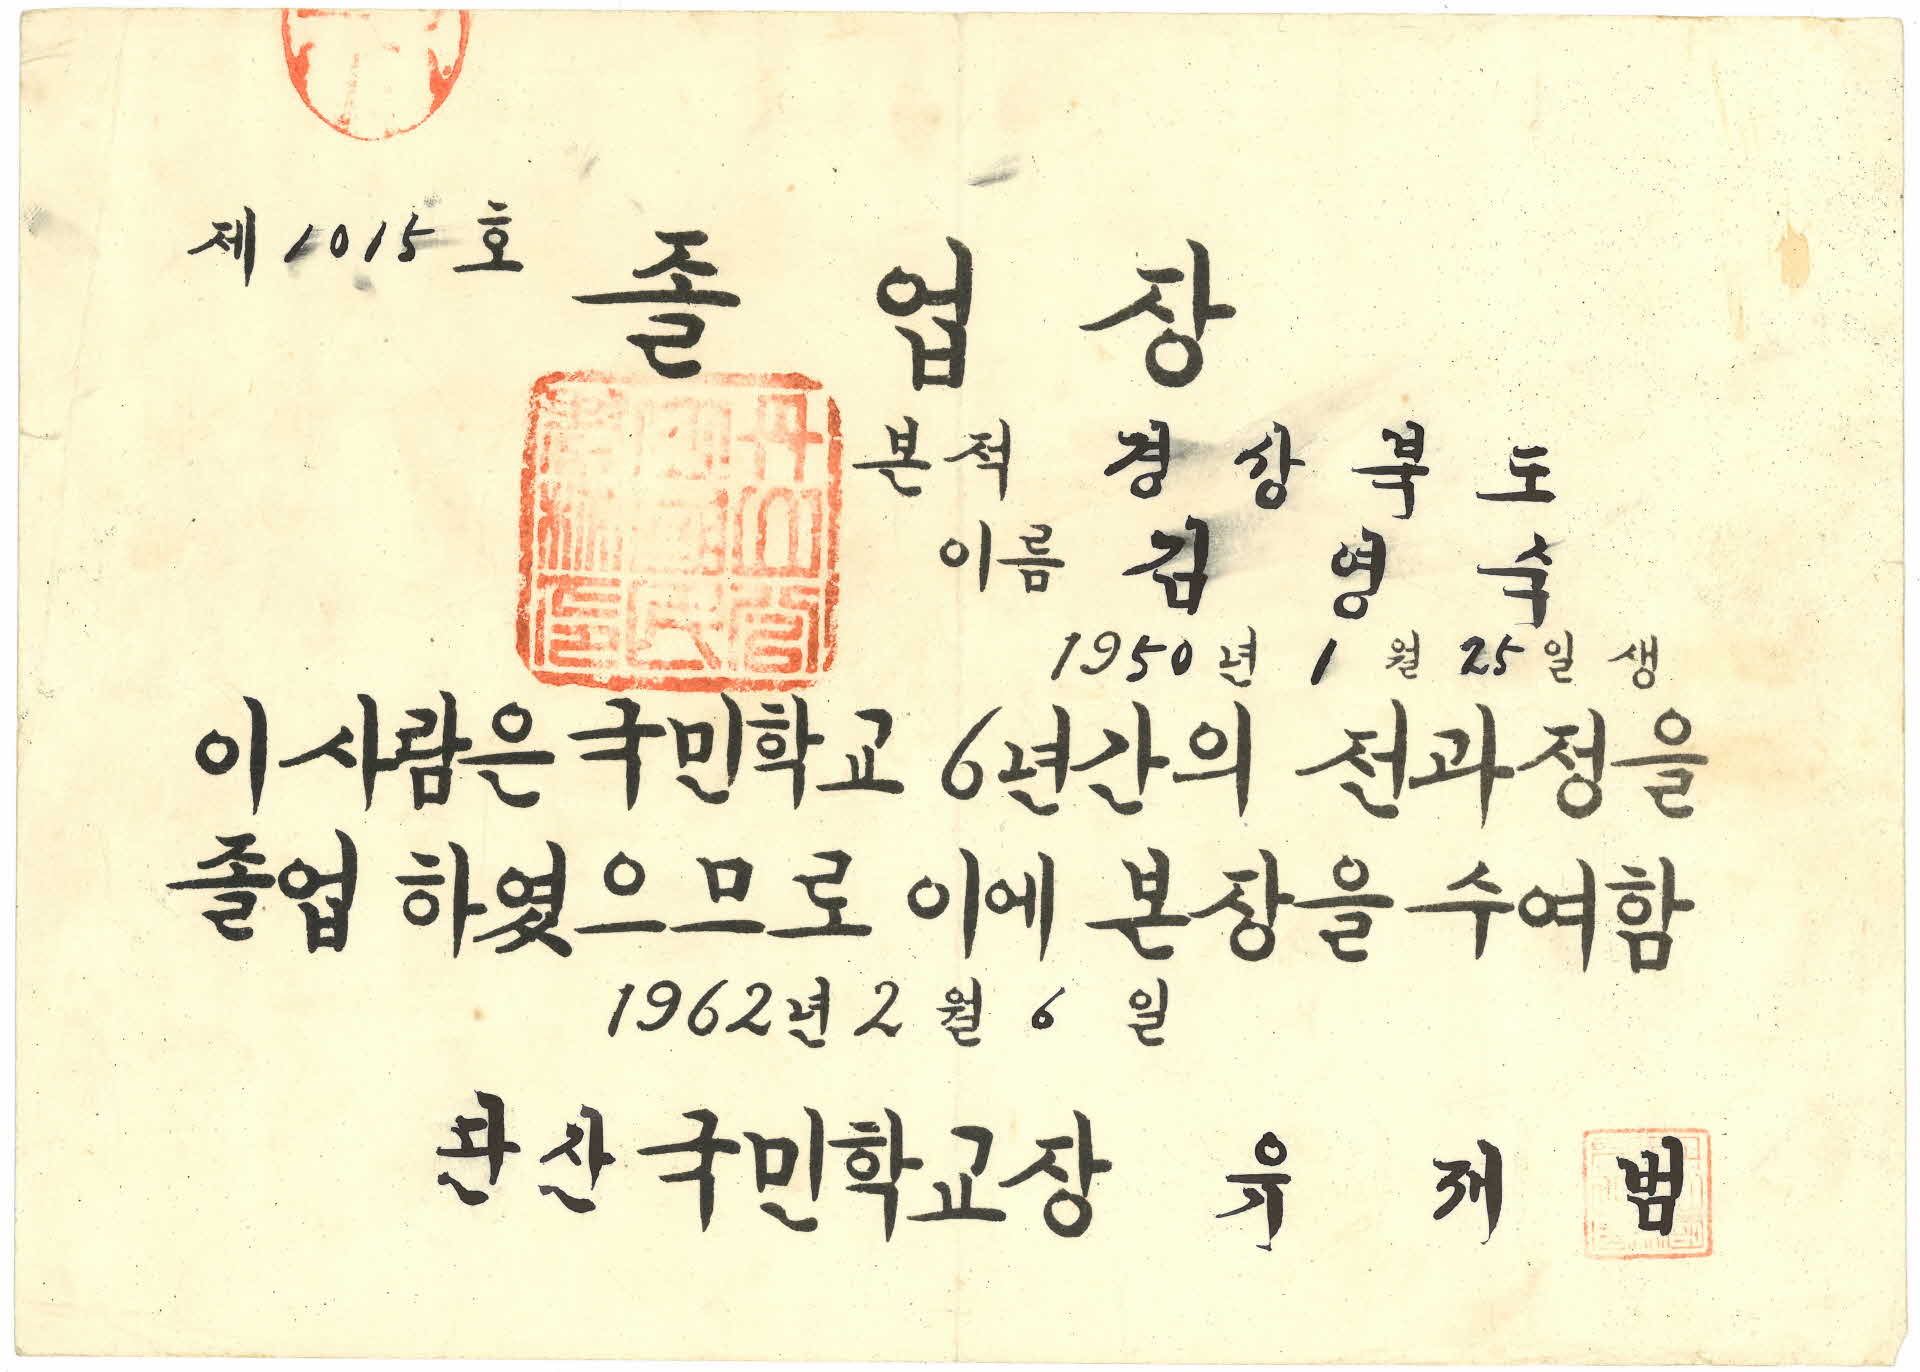 제 1015 호
졸업장
본적 경상북도
이름 김영숙
1950년 1월 25일생
이 사람은 국민학교 6년간의 전과정을
졸업 하였으므로 이에 본장을 수여함
1962년 2월 6일
단산국민학교장 유재범